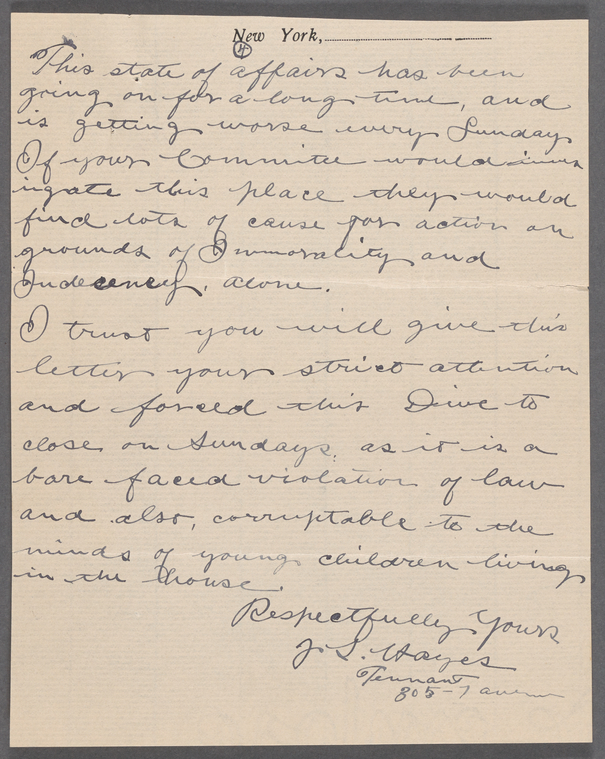 New York,
4
This state of affairs has been
going on for a long time, and
is getting worse every Sunday
If your Committee would inves
igate this place they would
find lots of cause for action on
grounds of Immorality and
Indecency, alone.
I trust you will give this
letter your strict attention
and forced this Dive to
close on Sundays, as it is a
bare faced violation of law
and also, corruptable to the
minds of young children living
in the house.
Respectfully Yours
J. S. Hayes
Tennant
305-7 avenue